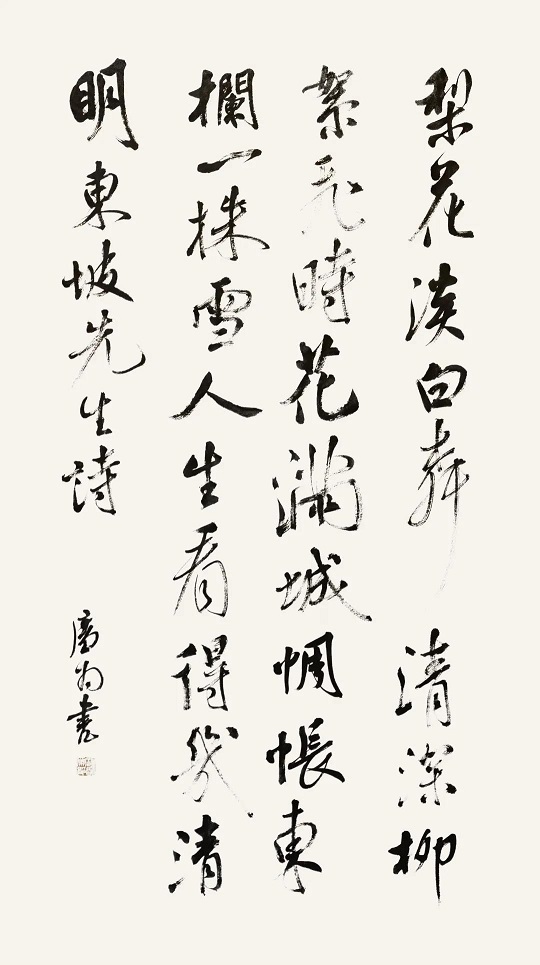 梨花淡白清深柳
絮飛時花滿城惆悵東
欄一株雪人生看得幾清
明東坡先生詩
書